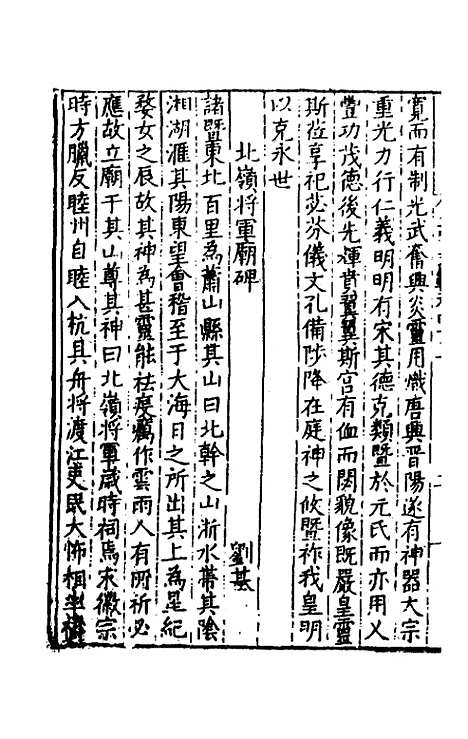 寬而有制光武奮興炎靈用熾唐興晉陽遂有神器大宗
重光力行仁義明明有宋其德克類暨於元氏而亦用乂
豐功茂德後先渾賁翼翼斯宮有侐而閟貌像旣嚴皇靈
斯蒞享祀苾芬儀文孔備陟降在庭神之攸暨祚我皇明
以克永世
北嶺將軍廟碑 劉基
諸暨東北百里爲蕭山縣其山曰北幹之山浙水帶其陰
湘湖滙其陽東望會稽至于大海日之所出其上爲星紀
婺女之辰故其神爲甚靈能祛疫癘作雲雨人有所祈必
應故立廟于其山尊其神曰北嶺將軍歲時祠焉宋徽宗
時方臘反睦州自睦入杭具舟將渡江吏民大怖相率禱